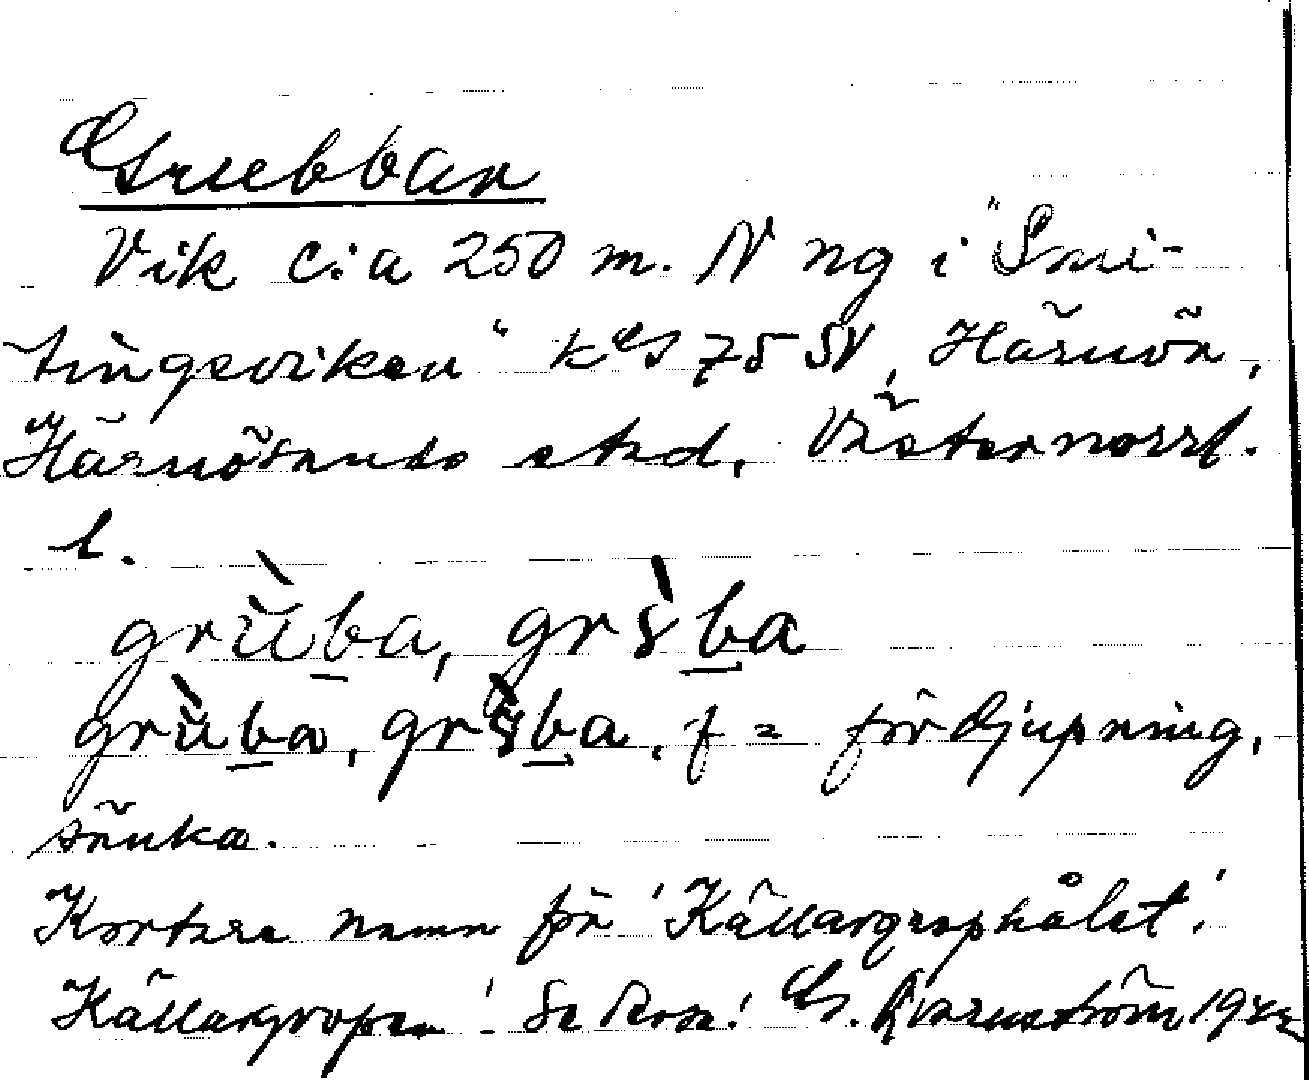 Grubban
Vik c:a 250 m. N ng i "Smi-
tingsviken" 75 SV, Härnön,
Härnösands stad, Västernorrl.
l.
grùba,
grùba, f = fördjupning,
sänka.
Kortare namn för 'Källargrophålet'.
Källargropen! Se dessa! G. 19